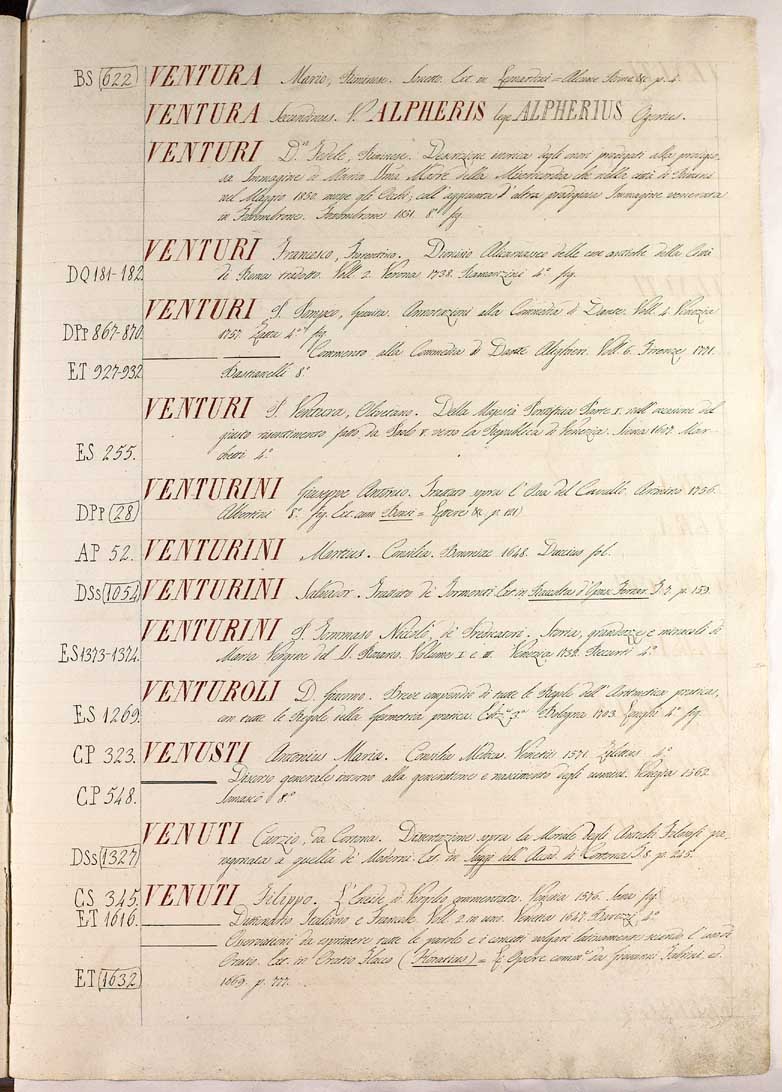 BS 622 VENTURA Mario, Riminese. Sonetto. Est. in Leonardini = Alcune Rime &c. p. 4.
VENTURA Secundinus. V. ALPHERIS lege ALPHERIUS Ogerius.
VENTURI D.n Fedele, Riminese. Descrizione storica degli onori prodigati alla prodigio-
sa Immagine di Maria Vma Madre della Misericordia che nella città di Rimini
nel Maggio 1850 mosse gli Occhi; coll' aggiunta d' altra prodigiosa Immagine venerata
in Fossombrone. Fossombrone 1851. 8.o fig.
VENTURI Francesco, Fiorentino. Dionisio Alicarnasseo delle cose antiche della Città
DQ 181-182. di Roma tradotto. Voll. 2. Verona 1738. Ramanzini 4.o fig.
VENTURI P. Pompeo, Gesuita. Annotazioni alla Commedia di Dante. Voll. 4. Venezia
DPp 867-870. 1757. Zatta 4.o fig.
Commento alla Commedia di Dante Alighieri. Voll. 6. Firenze 1771.
ET 927-932 Bastianelli 8.o
VENTURI P. Ventura, Olivetano. Della Maestà Pontificia Parte I. nell' occasione del
giusto risentimento fatto da Paolo V. verso la Republica di Venezia. Siena 1607. Mar-
ES 255. chetti 4.o
VENTURINI Giuseppe Antonio. Trattato sopra l' Uso del Cavallo. Arimino 1756.
DPp 28 Albertini 8.o fig. Est. cum = Lettere &c. p. 121)
AP 52. VENTURINI Martius. Consilia. Bononiae 1648. Duccius fol.
DSs 1054 VENTURINI Salvador. Trattato de' Tormenti. Est. in Raccolta d' Opusc. Ferrar. T. 7. p. 159.
VENTURINI P. Tommaso Niccolò, de' Predicatori. Storia, grandezze e miracoli di
ES 1373-1374. Maria Vergine del SS. Rosario. Volumes I e III. Venezia 1732. Recurti 4.o
VENTUROLI D. Giacomo. Breve compendio di tutte le Regole dell' Aritmetica pratica,
ES 1269. con tutte le Regole della Geometria pratica. Ediz.e 3.a Bologna 1703. Longhi 4.o fig.
CP 323. VENUSTI Antonius Maria. Consilia Medica. Venetiis 1571. Zilettus 4.o
Discorso generale intorno alla generatione e nascimento degli uomini. Venezia 1562.
CP 548. Somasco 8.o
VENUTI Curzio, da Cortona. Dissertazione sopra la Morale degli Antichi Filosofi pa-
DSs 1327 ragonata a quella de' Moderni. Est. in Saggi dell' Accad. di Cortona T. 8. p. 245.
CS 345. VENUTI Filippo. L' Eneide di Vergilio commentata. Venetia 1576. Sessa fig.
ET 1616. Dittionario Italiano e Francese. Voll. 2. in uno. Venetia 1647. 4.o
Osservationi da esprimere tutte le parole e i concetti volgari latinamente, secondo l' uso di
Oratio. Est. in Oratio Flacco (Horatius) = L' Opere comm.te da Giovanni Fabrini ed.
ET 1632 1669. p. 777.